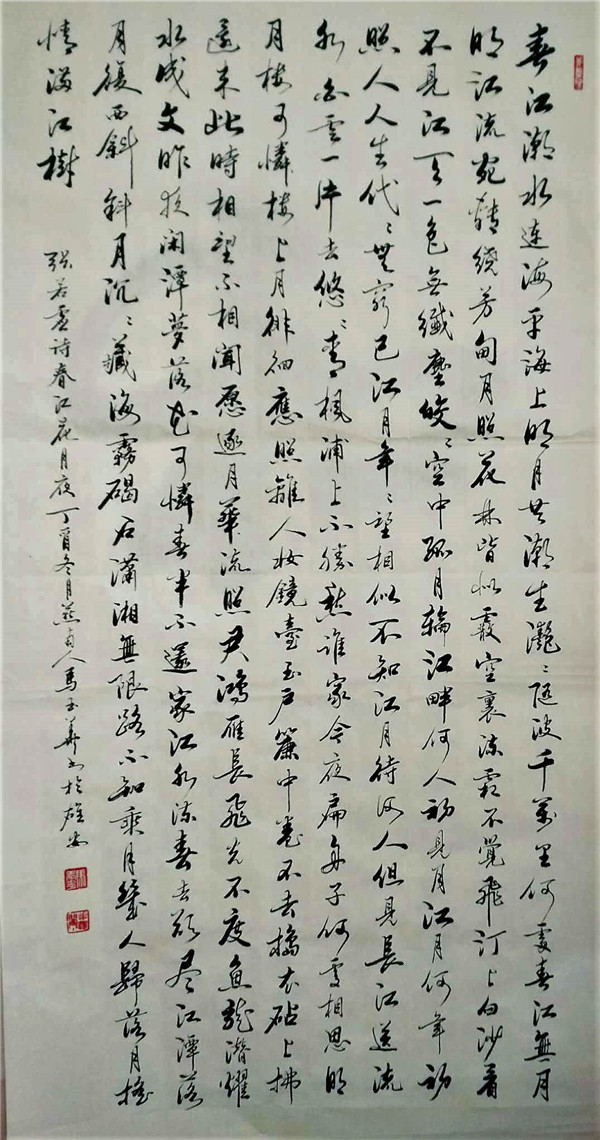 春江潮水連海平海上明月共潮生灔灔隨波千萬里何處春江無月
明江流宛轉繞芳甸月照花林皆似霰空裏流霜不覺飛汀上白沙看
不見江天一色無纖塵皎皎空中孤月輪江畔何人初見月江月何年初
照人人生代代無窮已江月年年望相似不知江月待何人但見長江送流
水白雲一片去悠悠青楓浦上不勝愁誰家今夜扁舟子何處相思明
月樓可憐樓上月徘徊應照離人妝鏡臺玉戶簾中卷不去搗衣砧上拂
還來此時相望不相聞愿逐月華流照君鴻雁長飛光不度魚龍潛耀
水成文昨夜閑潭夢落花可憐春半不還家江水流春去欲盡江潭落
月復西斜斜月沉沉藏海霧碣石瀟湘無限路不知乘月幾人歸落月搖
情滿江樹
張若虛詩春江花月夜丁酉冬月燕人馬玉華書於雄安